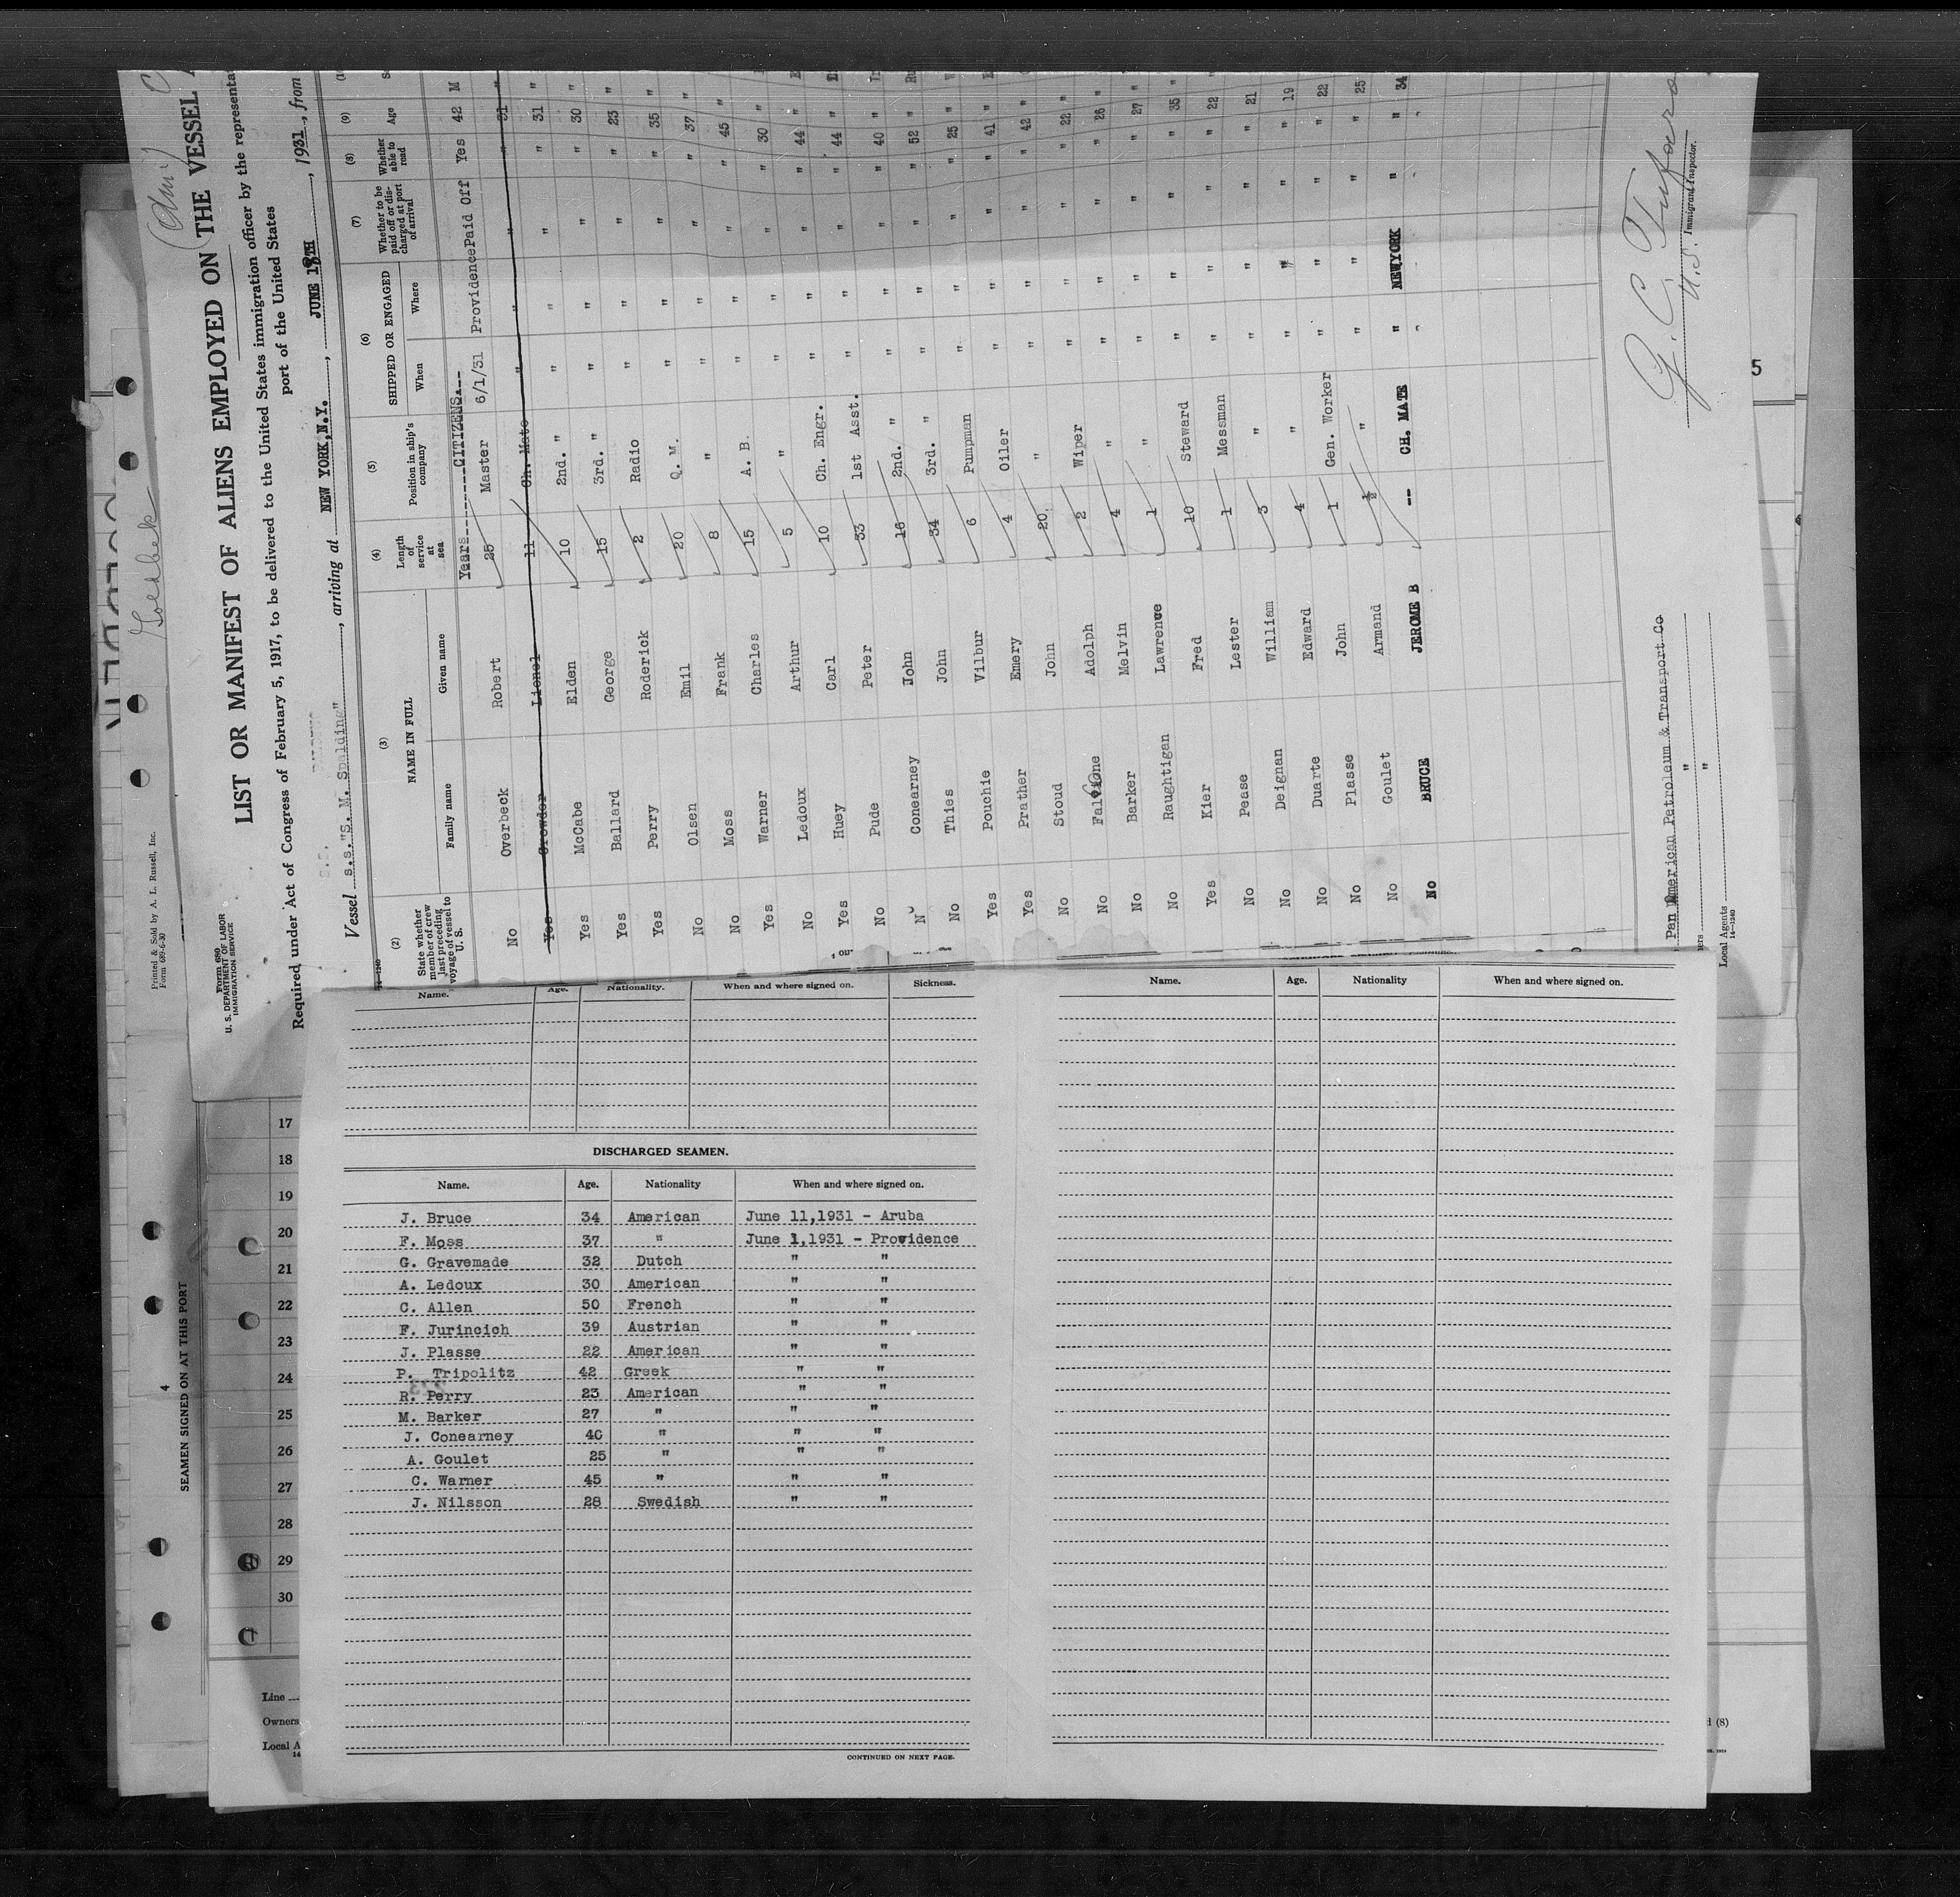 LIST OR MANIFEST OF ALIENS EMPLOYED ON THE VESSEL
Required under Act of Congress of February 5, 1917, to be delivered to the United States immigration officer by the representa
port of the United States
Form 689
U. S. DEPARTMENT OF LABOR
IMMIGRATION SERVICE
Vessel s.s."S. M. Spalding", arriving at NEW YORK,N.Y., JUNE 18TH, 1931, from
(2) (3) (4) (5) (6) (7) (8) (9)
State whether member of crew last preceding voyage of vessel to U. S.
NAME IN FULL
Family name Given name
Length of service at sea
Position in ship's company
SHIPPED OR ENGAGED
When Where
Whether to be paid off or discharged at port of arrival
Whether able to read
Age
Years------CITIZENS---
No Overbeck Robert 25 Master 6/1/31 Providence Paid Off Yes 42 M
Yes Crowder Lionel 11 Ch. Mate " " " " 31 "
Yes McCabe Elden 10 2nd. " " " " " 31 "
Yes Ballard George 15 3rd. " " " " " 30 "
Yes Perry Roderick 2 Radio " " " " 23 "
No Olsen Emil 20 Q. M. " " " " 35 "
No Moss Frank 8 " " " " " 37 "
Yes Warner Charles 15 A. B. " " " " 45 "
No Ledoux Arthur 5 " " " " " 30 "
Yes Huey Carl 10 Ch. Engr. " " " " 44 "
No Pude Peter 33 1st Asst. " " " " 44 "
No Conearney John 16 2nd. " " " " " 40 "
No Thies John 34 3rd. " " " " " 52 "
Yes Pouchie Vilbur 6 Pumpman " " " " 25 "
Yes Prather Emery 4 Oiler " " " " 41 "
No Stoud John 20 " " " " " 42 "
No Adolph 2 Wiper " " " " 22 "
No Barker Melvin 4 " " " " " 26 "
No Raughtigan Lawrence 1 " " " " " 27 "
Yes Kier Fred 10 Steward " " " " 35 "
No Pease Lester 1 Messman " " " " 22 "
No Deignan William 3 " " " " " 21
No Duarte Edward 4 " " " " " 19
No Plasse John 1 Gen. Worker " " " " 22
No Goulet Armand ½ " " " " " 25
No BRUCE JEROME B -- CH. MATE " NEWYORK " " 34
Pan American Petroleum & Transport Co
" "
Local Agents
14-1240
G. C.
U.S. Immigrant Inspector.
Printed & Sold by A. L. Russell, Inc.
Form 689-6-30
4
SEAMEN SIGNED ON AT THIS PORT
5
17
18
19
20
21
22
23
24
25
26
27
28
29
30
Line
Owners
Local A
Name. Age. Nationality. When and where signed on. Sickness.
DISCHARGED SEAMEN.
Name. Age. Nationality When and where signed on.
J. Bruce 34 American June 11,1931 - Aruba
F. Moss 37 " June 1,1931 - Providence
G. Gravemade 32 Dutch " "
A. Ledoux 30 American " "
C. Allen 50 French " "
F. Jurincich 39 Austrian " "
J. Plasse 22 American " "
P. Tripolitz 42 Greek " "
R. Perry 23 American " "
M. Barker 27 " " "
J. Conearney 40 " " "
A. Goulet 25 " " "
C. Warner 45 " " "
J. Nilsson 28 Swedish " "
CONTINUED ON NEXT PAGE.
Name. Age. Nationality When and where signed on.